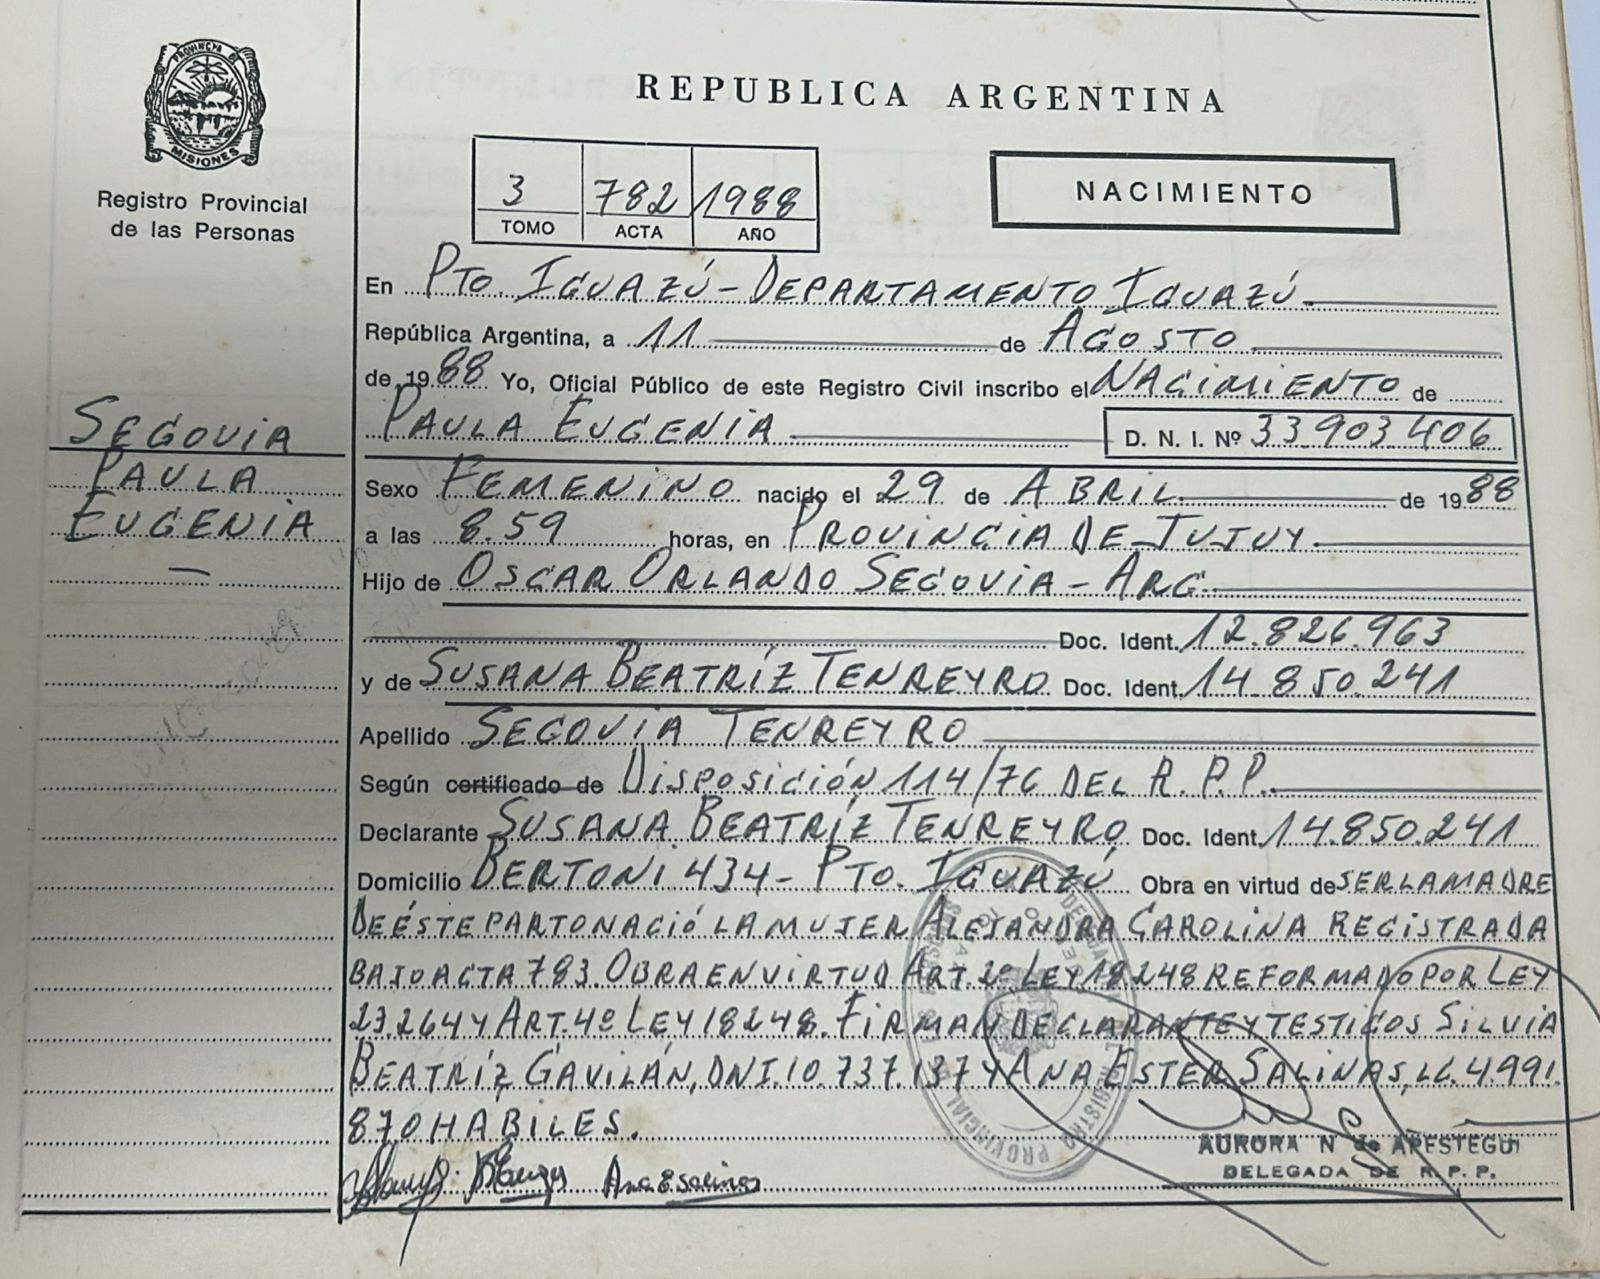 PROVINCIA DE
MISIONES
Registro Provincial
de las Personas
REPUBLICA ARGENTINA
3 782 1988
TOMO ACTA AÑO
NACIMIENTO
SEGOVIA
PAULA
EUGENIA
—
En PTO. IGUAZÚ - DEPARTAMENTO IGUAZÚ.
República Argentina, a 11 de AGOSTO
de 1988 Yo, Oficial Público de este Registro Civil inscribo el NACIMIENTO de
PAULA EUGENIA D. N. I. Nº 33.903.406
Sexo FEMENINO nacido el 29 de ABRIL de 1988
a las 8.59 horas, en PROVINCIA DE JUJUY.
Hijo de OSCAR ORLANDO SEGOVIA - ARG.
Doc. Ident. 12.826.963
y de SUSANA BEATRÍZ TENREYRO Doc. Ident. 14.850.241
Apellido SEGOVIA TENREYRO
Según certificado de DISPOSICIÓN 114/76 DEL R.P.P.
Declarante SUSANA BEATRÍZ TENREYRO Doc. Ident. 14.850.241
Domicilio BERTONI 434 - PTO. IGUAZÚ Obra en virtud de SER LA MADRE
DE ÉSTE PARTO NACIÓ LA MUJER ALEJANDRA CAROLINA REGISTRADA
BAJO ACTA 783. OBRA EN VIRTUD ART. 2º LEY 18.248 REFORMADO POR LEY
23.264 Y ART. 4º LEY 18248. FIRMAN DECLARANTE Y TESTIGOS SILVIA
BEATRÍZ GAVILÁN, DNI. 10.737.137 Y ANA ESTER SALINAS, LC. 4.991.
870 HABILES.
Ana E Salinas
AURORA N de APESTEGUI
DELEGADA DE R. P. P.
REGISTRO PROVINCIAL